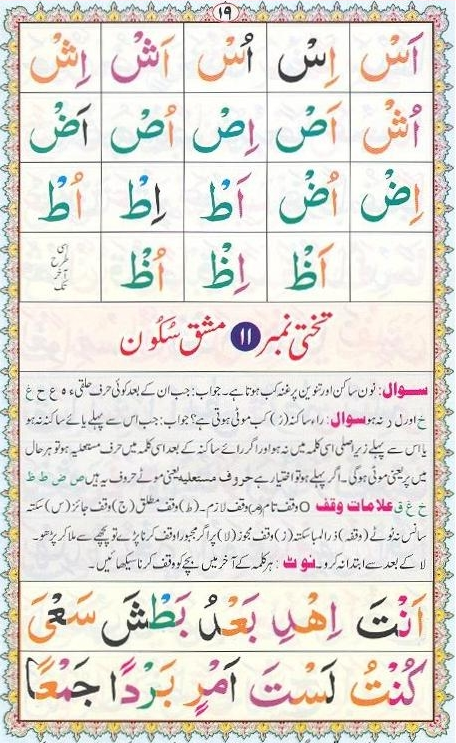 ١٩
اَسْ اِسْ اُسْ اَشْ اِشْ
اُشْ اَصْ اِصْ اُصْ اَضْ
اِضْ اُضْ اَطْ اِطْ اُطْ
اَظْ اِظْ اُظْ اسی طرح آخر تک
تختی نمبر ۱۱ مشق سُکُون
سوال: نون ساکن اور تنوین پر غنہ کب ہوتا ہے۔ جواب: جب ان کے بعد کوئی حرف حلقی ء ہ ع ح غ
خ اور ل ر نہ ہو سوال: راء ساکنہ (رْ) کب موٹی ہوتی ہے؟ جواب: جب اس سے پہلے یائے ساکنہ نہ ہو
یا اس سے پہلے زیر اصلی اسی کلمہ میں نہ ہو اور اگر رائے ساکنہ کے بعد اسی کلمہ میں حرف مستعلیہ ہو تو ہر حال
میں پر یعنی موٹی ہوگی۔ اگر پہلے ہو تو اختیار ہے حروف مستعلیہ یعنی موٹے حروف یہ ہیں ص ض ط ظ
خ غ ق علامات وقف ○ وقف تام (مـ) وقف لازم۔ (ط) وقف مطلق (ج) وقف جائز (س) سکتہ
سانس نہ ٹوٹے (وقفہ) ذرا لمبا سکتہ (ز) وقف مجوز (لا) پر اگر مجبوراً وقف کرنا پڑے تو پیچھے سے ملا کر پڑھو۔
لا کے بعد سے ابتدا نہ کرو۔ نوٹ: ہر کلمہ کے آخر میں بچے کو وقف کرنا سیکھائیں۔
اَنْتَ اِهْدِ بَعْدُ بَطْشَ سَعْیَ
کُنْتُ لَسْتَ اَمْرٍ بَرْدًا جَمْعًا